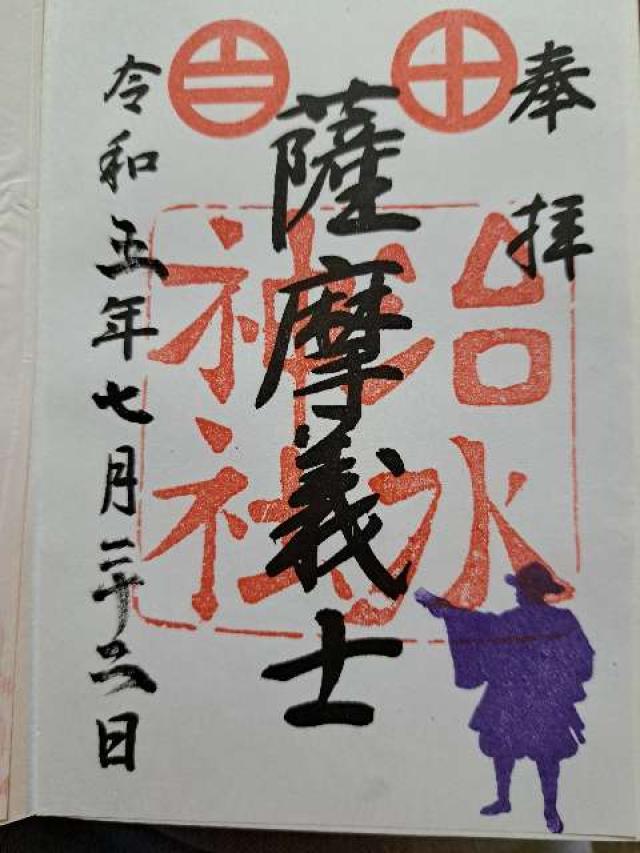 奉拝
治水
神社
薩摩義士
令和五年七月二十二日